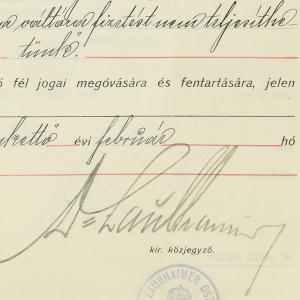 a váltóra fizetést nem teljesíthe
tünk".
ő fél jogai megóvására és fentartására, jelen
évi február hó
Dr Laubhaimer
kir. közjegyző.
LAUBHAIMER OSZ